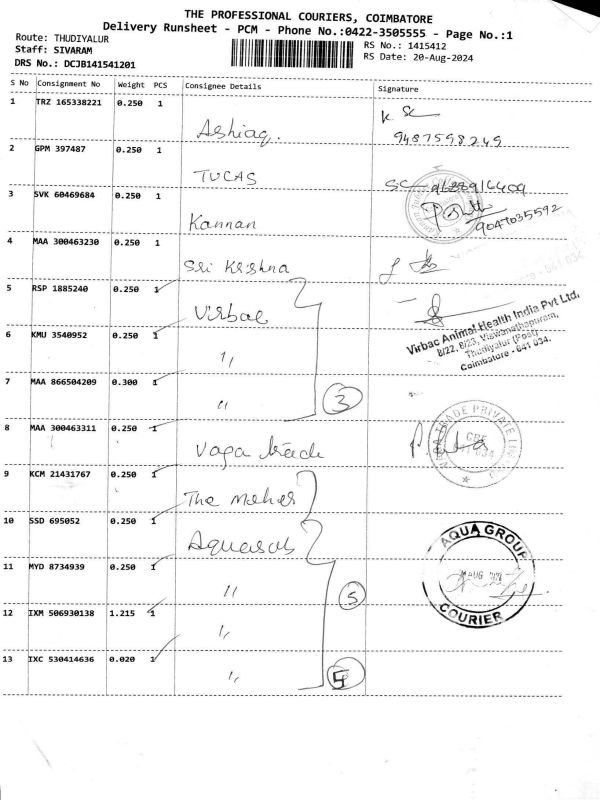 THE PROFESSIONAL COURIERS, COIMBATORE
Delivery Runsheet - PCM - Phone No.:0422-3505555 - Page No.:1
Route: THUDIYALUR
Staff: SIVARAM
RS No.: 1415412
DRS No.: DCJB141541201
RS Date: 20-Aug-2024
S No Consignment No Weight PCS Consignee Details Signature
1 TRZ 165338221 0.250 1 Ashiaq. 9487598249
2 GPM 397487 0.250 1 TUCAS
3 SVK 60469684 0.250 1 Kannan 9047035592
4 MAA 300463230 0.250 1 Sri Krishna
5 RSP 1885240 0.250 1 Virbac
Virbac Animal Health India Pvt Ltd,
8/22, 8/23, Viswanathapuram,
Thudiyalur (Post)
Coimbatore - 641 034.
6 KMU 3540952 0.250 1 "
7 MAA 866504209 0.300 1 " 3
8 MAA 300463311 0.250 1 Vaga trade
TRADE PRIVATE
9 KCM 21431767 0.250 1 The
10 SSD 695052 0.250 1 Aquasub
AQUA GROUP
AUG
COURIER
11 MYD 8734939 0.250 1 " 5
12 IXM 506930138 1.215 1 "
13 IXC 530414636 0.020 1 " 5